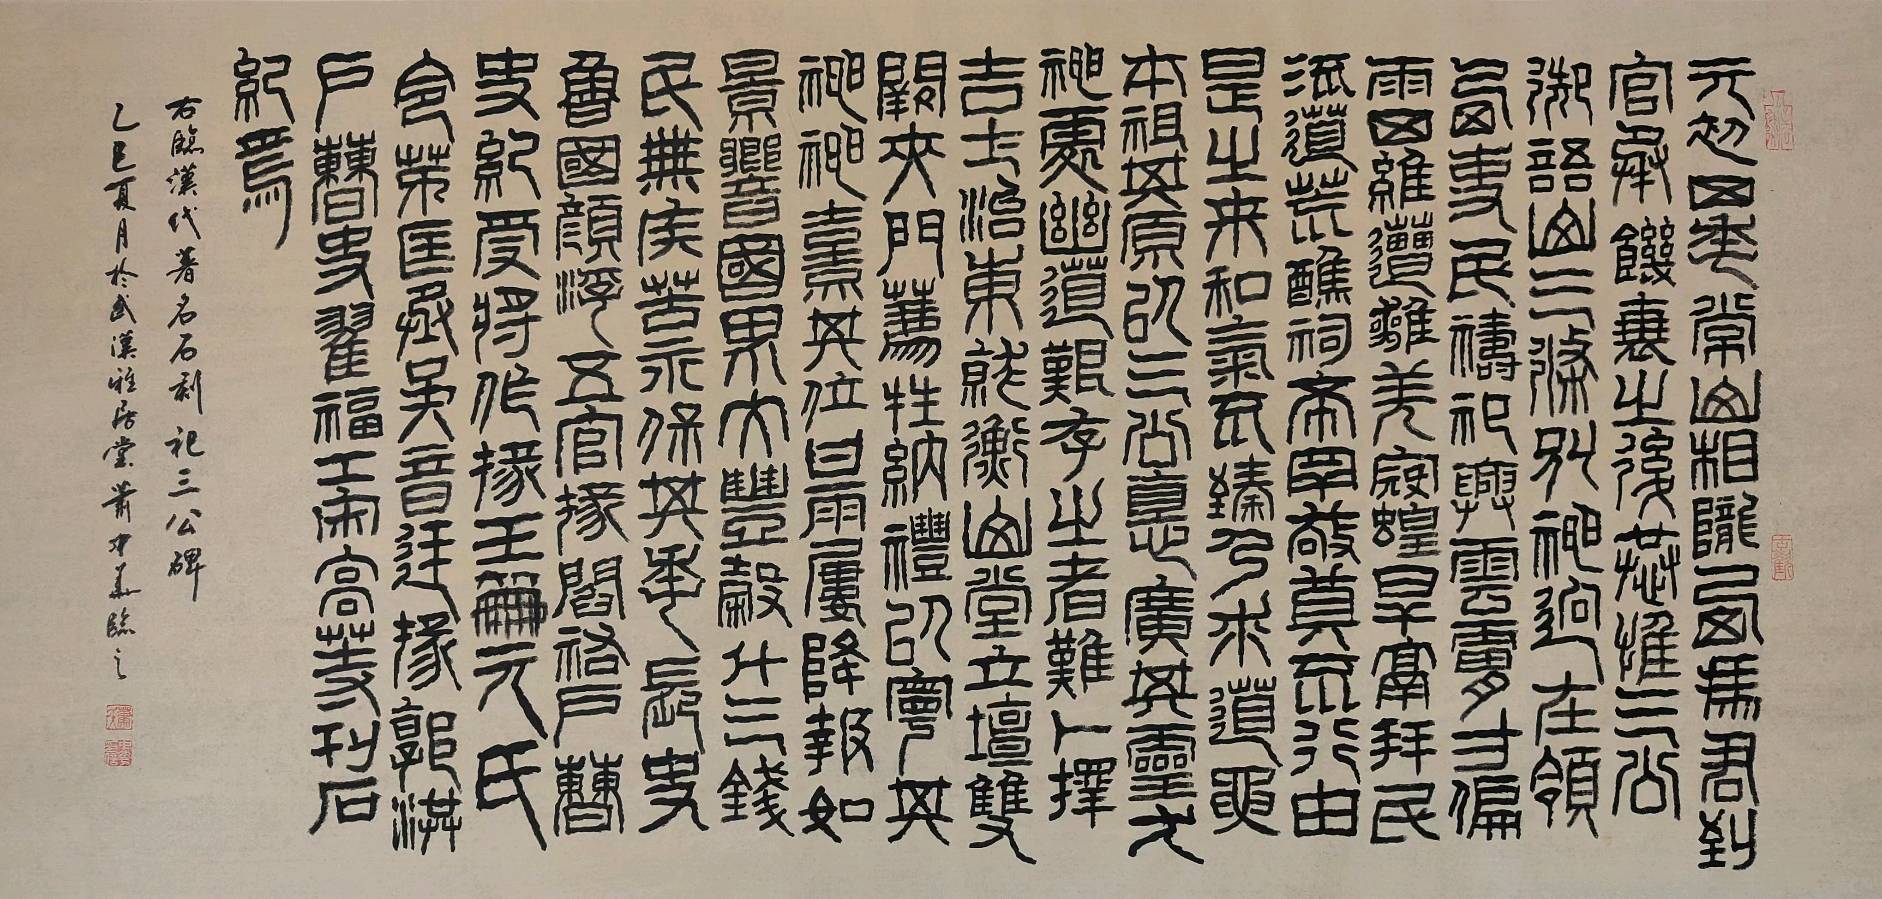 元初四年常山相隴西馮君到
官承饑衰之後惟三公
御語山三條別神迥在領
西吏民禱祀興雲膚寸徧
雨四維遭離羌寇蝗旱鬲并民
流道荒醮祠希罕敬奠不行由
是之來和氣不臻乃求道要
本祖其原以三公惪廣其靈尤
神處幽道艱存之者難卜擇
吉土治東就衡山堂立壇雙
闕夾門薦牲納禮以寧其
神神熹其位甘雨屢降報如
景響國界大豐穀斗三錢
民無疾苦永保其年長史
魯國顏浮五官掾閻祐戶曹
史紀受將作掾王笧元氏
令茅匡丞吳音廷掾郭洪
戶曹史翟福工宋高等刊石
紀焉
右臨漢代著名石刻祀三公碑
乙巳夏月於武漢雅居堂蕭中華臨之